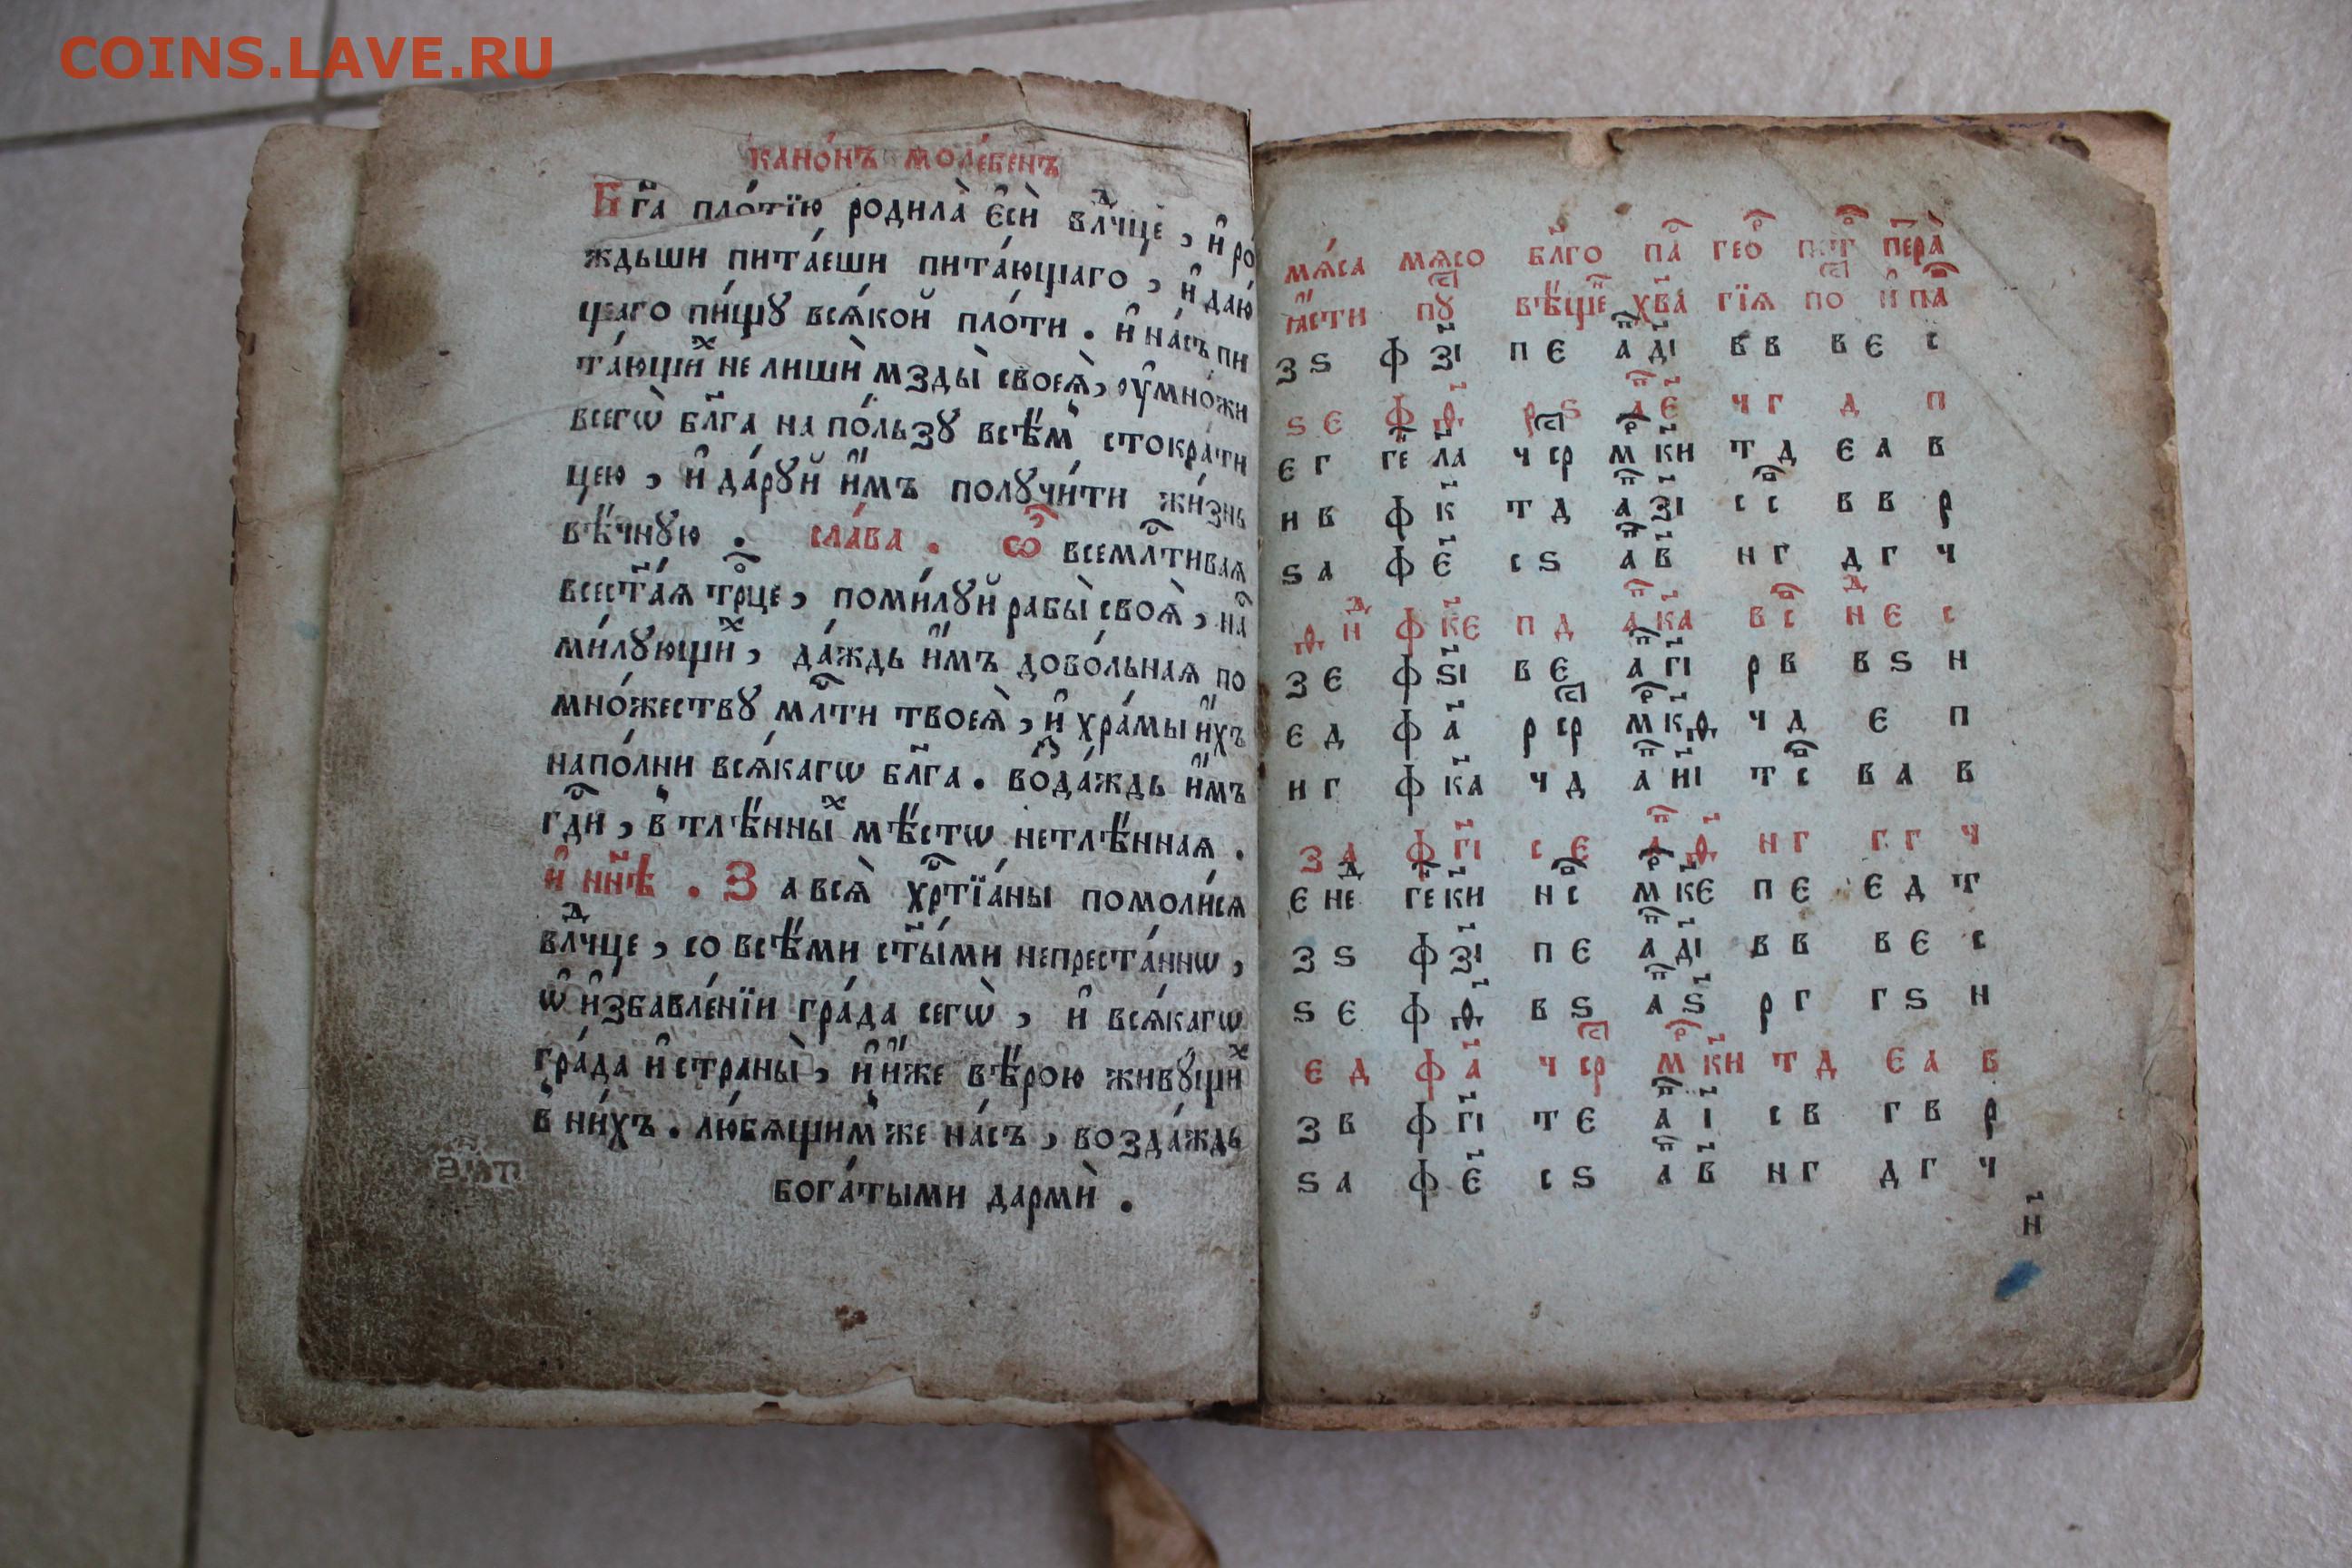 COINS.LAVE.RU
кано́нъ моле́бенъ
Бг҃а пло́тїю родила̀ є҆сѝ влⷣчце, и҆ ро
ждьши пита́еши пита́ющаго, и҆ даю́
щаго пи́щꙋ всѧ́кой пло́ти. и҆ на́съ пи
та́ющиⷯ не лишѝ мзды̀ своеѧ̀, ѹ҆мно́жи
всегѡ̀ бл҃га на по́льзꙋ всѣ̑м стокра́ти
цею, и҆ да́рꙋй и҆̀мъ полꙋчи́ти жи́знь
вѣ́чнꙋю. сла́ва. ѽ всемлⷭ҇тиваѧ
всест҃а́ѧ трⷪ҇це, поми́лꙋй рабы̀ своѧ̀, на́
ми́лꙋющиⷯ, да́ждь и҆̀мъ дово́льнаѧ по
мно́жествꙋ млⷭ҇ти твоеѧ̀, и҆ хра́мы и҆̀хъ
напо́лни всѧ́кагѡ бл҃га. воⷥда́ждь и҆̀мъ
гдⷭ҇и, в тлѣ́нныⷯ мѣ́стѡ нетлѣ́ннаѧ.
и҆ нн҃ѣ. За всѧ̀ хрⷭ҇тїа́ны помоли́сѧ
влⷣчце, со всѣ́ми ст҃ы́ми непреста́ннѡ,
ѡ҆ и҆збавле́нїи гра́да сегѡ̀, и҆ всѧ́кагѡ
гра́да и҆ страны̀, и҆ и҆̀же вѣ́рою живꙋ́щиⷯ
в ни́хъ. лю́бѧщим же на́съ, возда́ждь
бога́тыми дармѝ.
мѧ́са мѧсо бл҃го паⷭ҇ гео петⷬ҇ пера̀
ꙗ҆сти пꙋⷭ҇ вѣ́щеⷩ хв҃а гїѧ поⷭ҇ и҆ па
з ѕ ф з҃і п є а д҃і в в в є с
ѕ є ф ѳ҃ р ѕ а є҃ ч г д п
є г ге л҃а ч ср м к҃и т д є а в
н в ф к҃ т д а з҃і с с в в р
ѕ а ф є҃ с ѕ а в҃ н г д г ч
ѳ н ф к҃є п д а к҃а в с н є с
з є ф ѕ҃і в є а г҃і р в в ѕ н
є д ф а҃ р ср м к҃ѳ ч д є п
н г ф к҃а ч д а и҃і т с в а в
з д ф г҃і с є а ѳ҃ н г г г ч
є не ге к҃и н с м к҃є п є є д т
з ѕ ф з҃і п є а д҃і в в в є с
ѕ є ф ѳ҃ в ѕ а ѕ҃ р г г ѕ н
є д ф а҃ ч ср м к҃и т д є а в
з в ф г҃і т є а і҃ с в г в р
ѕ а ф є҃ с ѕ а в҃ н г д г ч
н҃